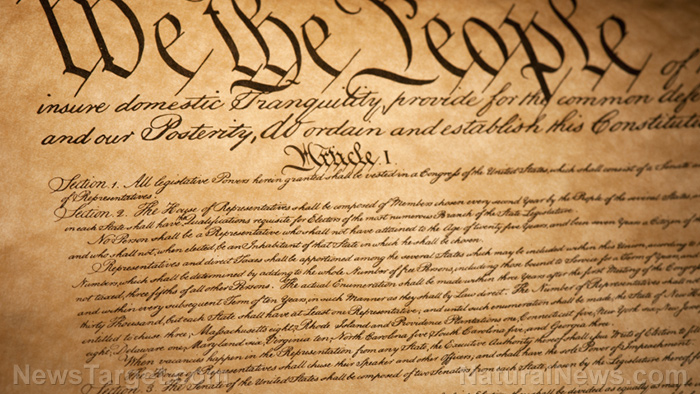 We the People of
insure domestic Tranquility, provide for the common defe
and our Posterity, do ordain and establish this Constituti
Article. I.
Section. 1. All legislative Powers herein granted shall be vested in a Congress of the United States, which shall consist of a Senate
of Representatives.
Section. 2. The House of Representatives shall be composed of Members chosen every second Year by the People of the several States
in each State shall have the Qualifications requisite for Electors of the most numerous Branch of the State Legislature.
No Person shall be a Representative who shall not have attained to the Age of twenty five Years, and been seven Years a Citizen of
and who shall not, when elected, be an Inhabitant of that State in which he shall be chosen.
Representatives and direct Taxes shall be apportioned among the several States which may be included within this Union, according
Numbers, which shall be determined by adding to the whole Number of free Persons, including those bound to Service for a Term of Years, and
not taxed, three fifths of all other Persons. The actual Enumeration shall be made within three Years after the first Meeting of the Congress
and within every subsequent Term of ten Years, in such Manner as they shall by Law direct. The Number of Representatives shall not
thirty Thousand, but each State shall have at Least one Representative; and until such enumeration shall be made, the State of New
entitled to chuse three, Massachusetts eight, Rhode Island and Providence Plantations one, Connecticut five, New York six, New Jersey
eight, Delaware one, Maryland six, Virginia ten, North Carolina five, South Carolina five, and Georgia three.
When vacancies happen in the Representation from any State, the Executive Authority thereof shall issue Writs of Election to
The House of Representatives shall chuse their Speaker and other Officers; and shall have the sole Power of Impeachment.
Section. 3. The Senate of the United States shall be composed of two Senators from each State, chosen by the Legislature thereof
NewsTarget.com
NaturalNews.com